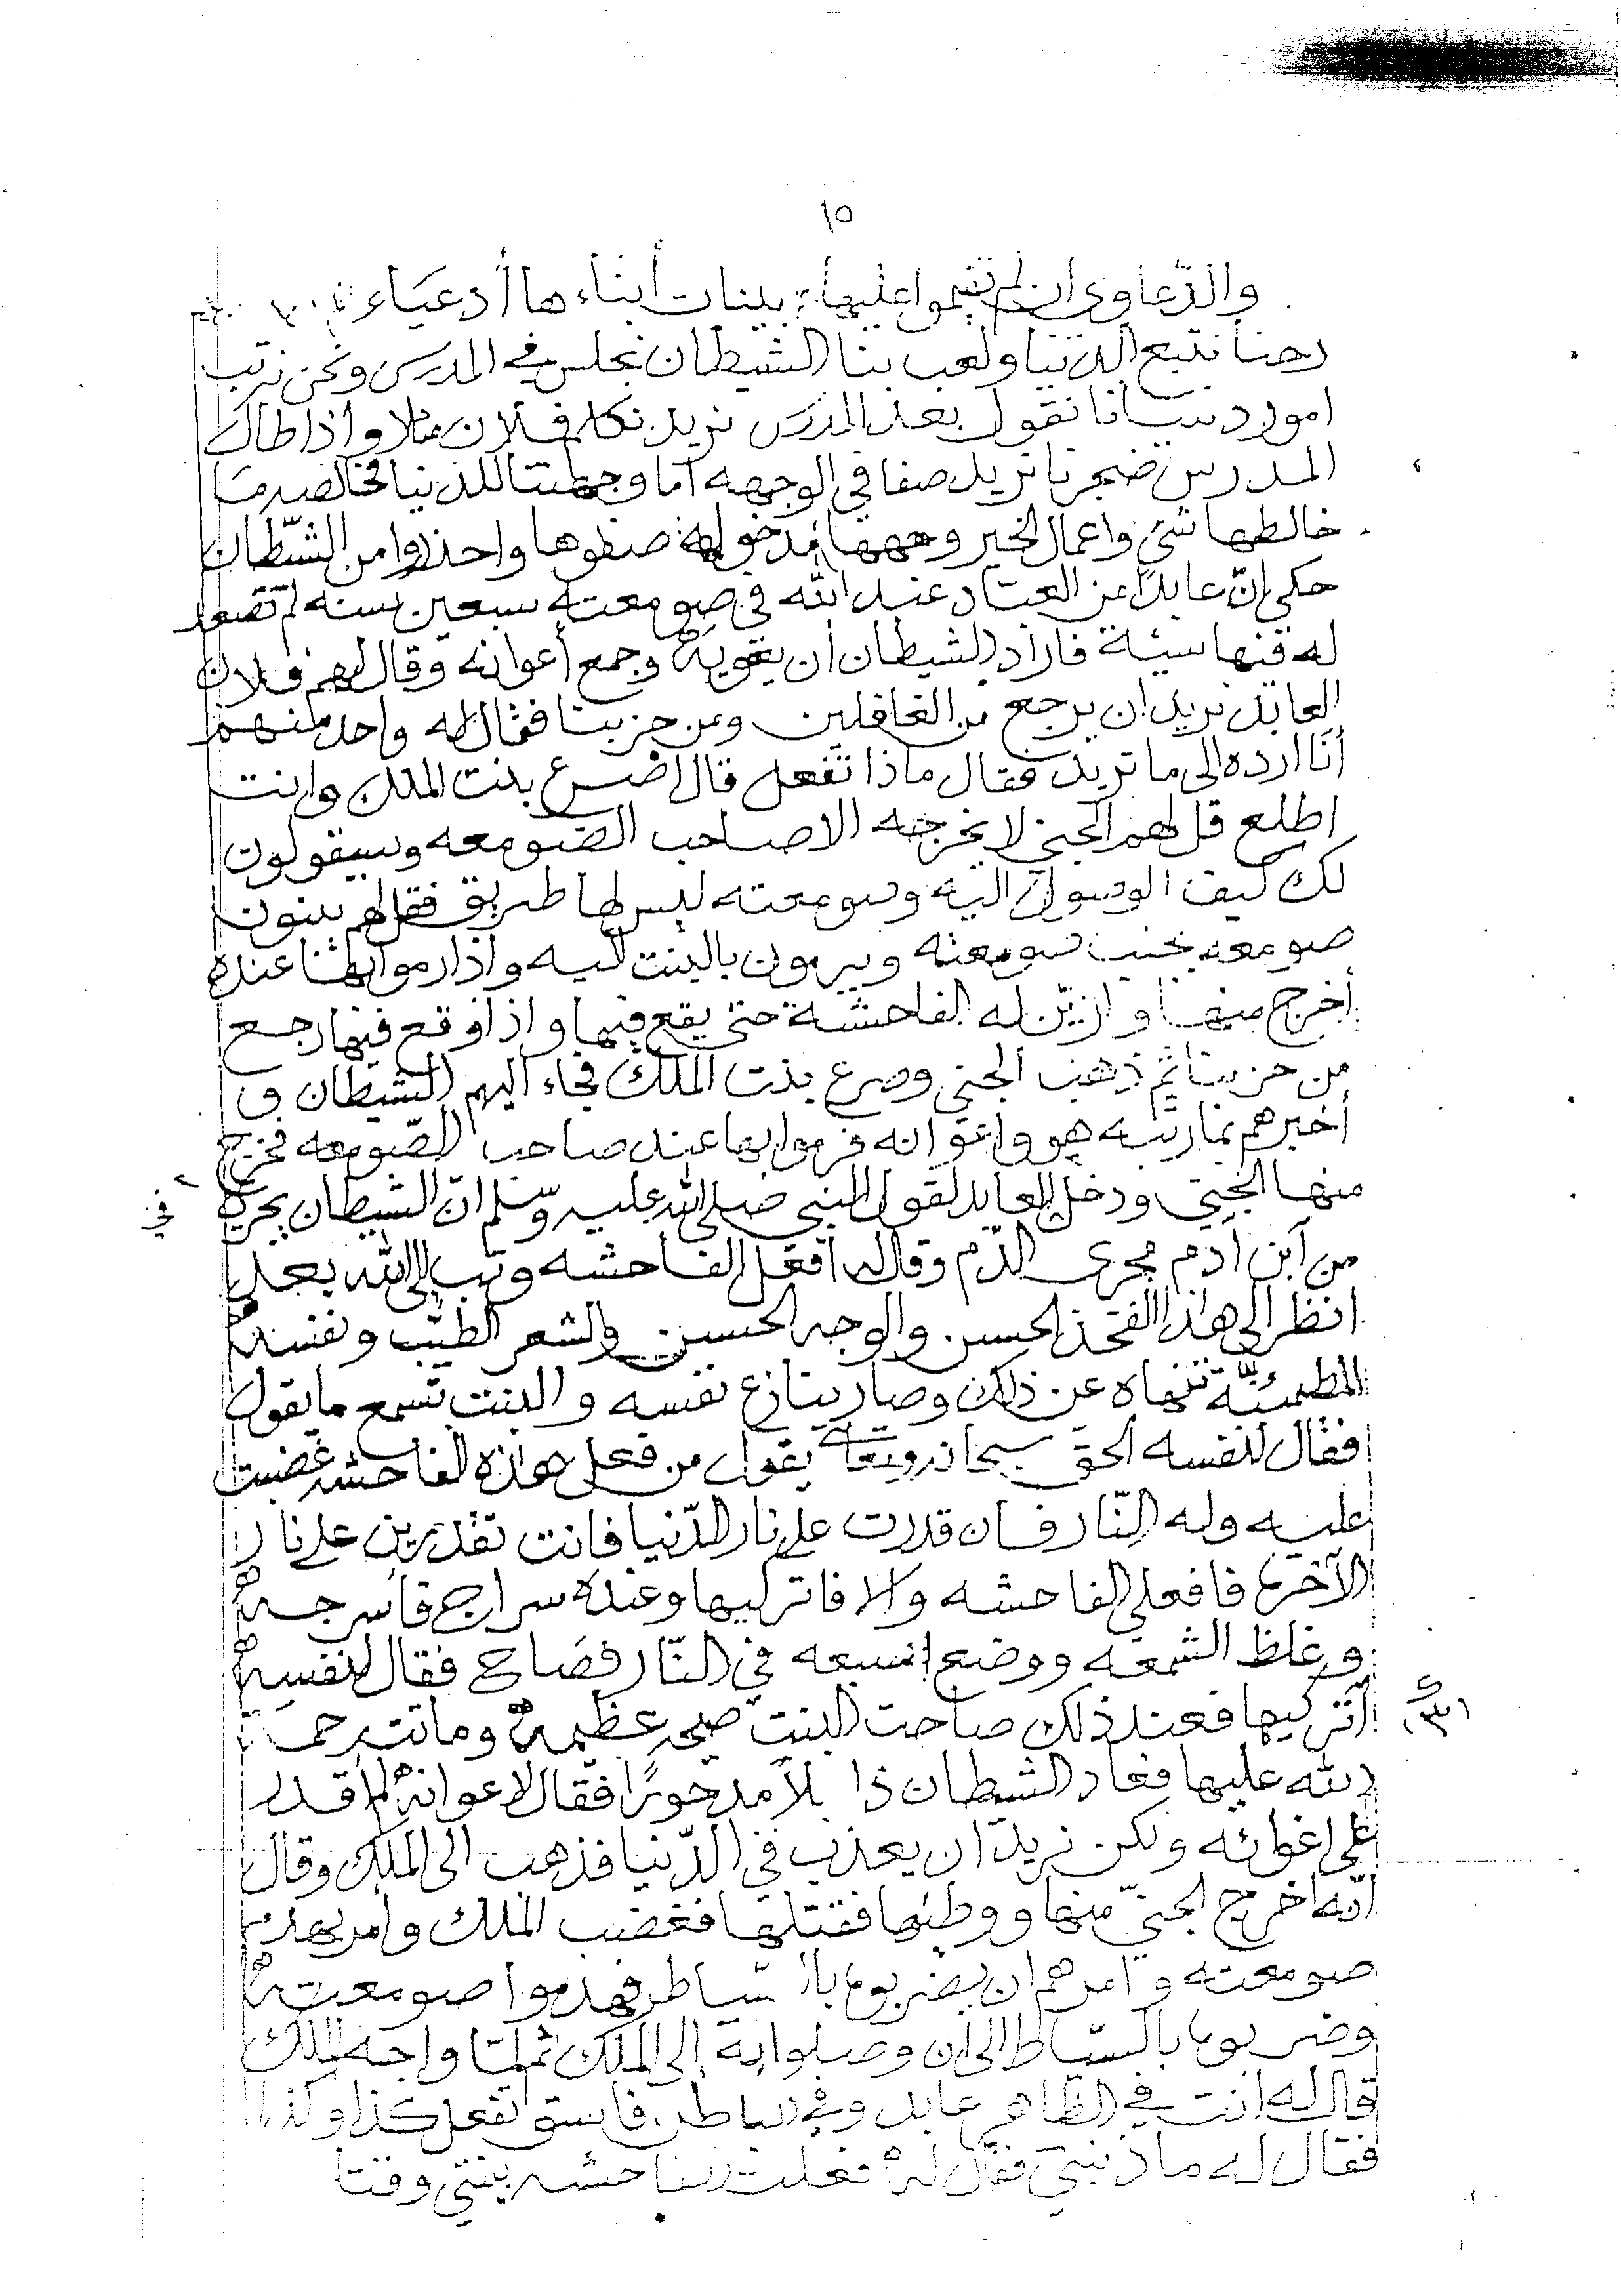 ١٥
والدّعاوى إن لم تقيموا عليها بينات أبناءها أدعياء
رحنا نتبع الدنيا ولعب بنا الشيطان نجلس في المدرس ونحن نرتب
امور دنيانا نقول بعد المدرس نريد نكلم فلان مثلا واذا طال
المدرس ضجرنا نريد صفا في الوجهه اما وجهتنا للدنيا فخالصه ما
خالطها شيء واعمال الخير وجهها مدخوله صفوها واحذروا من الشيطان
حكي انّ عابدًا من العباد عبد الله في صومعته سبعين سنه لم تصعد
له فيها سيئة فاراد الشيطان ان يغويه وجمع أعوانه وقال لهم فلان
العابد نريد ان يرجع من الغافلين ومن حزبنا فقال له واحد منهم
أنا ارده الى ما تريد فقال ماذا تفعل قال اصرع بنت الملك وانت
اطلع قل لهم الجني لا يخرجه الا صاحب الصومعه وسيقولون
لك كيف الوصول اليه وصومعته ليس لها طريق فقل لهم يبنون
صومعه بجنب صومعته ويرمون بالبنت اليه واذا رموا بها عنده
أخرج منها وازيّن له الفاحشة حتى يقع فيها واذا وقع فيها رجع
من حزبنا ثم ذهب الجني وصرع بنت الملك فجاء اليهم الشيطان و
أخبرهم بما رتبه هو واعوانه فرموا بها عند صاحب الصّومعه فخرج
منها الجني ودخل في العابد لقول النبي صلى الله عليه وسلم انّ الشيطان يجري
من آبن آدم مجرى الدّم وقال له افعل الفاحشه وتب الى الله بعد
انظر الى هذا الفخذ الحسن والوجه الحسن والشعر الطيّب ونفسه
المطمئنّة تنهاه عن ذلك وصار ينازع نفسه والبنت تسمع ما يقول
فقال لنفسه الحق سبحانه وتعالى يقول من فعل هذه الفاحشه غضبت
عليه وله النّار فان قدرت على نار الدّنيا فانت تقدرين على نار
الآخرة فافعلي الفاحشه والا فاتركيها وعنده سراج فاسرجه
وغلظ الشمعه ووضع اصبعه في النّار فصاح فقال لنفسه
آتركيها فعند ذلك صاحت البنت صيحه عظيمه وماتت رحمة
الله عليها فعاد الشيطان ذابلاً مدحورًا فقال لاعوانه لم اقدر
على اغوائه ولكن نريد ان يعذب في الدّنيا فذهب الى الملك وقال
انّه اخرج الجنيّ منها ووطئها فقتلها فغضب الملك وامر بهدم
صومعته وآمرهم ان يضربوه بالسّياط فهدموا صومعته
وضربوه بالسّياط الى ان وصلوا به إلى الملك ثم لما واجه الملك
قال له انت في الظاهر عابد وفي الباطن فاسق تفعل كذا وكذا
فقال له ما ذنبي فقال له فعلت الفاحشه بنتي وقتا
في